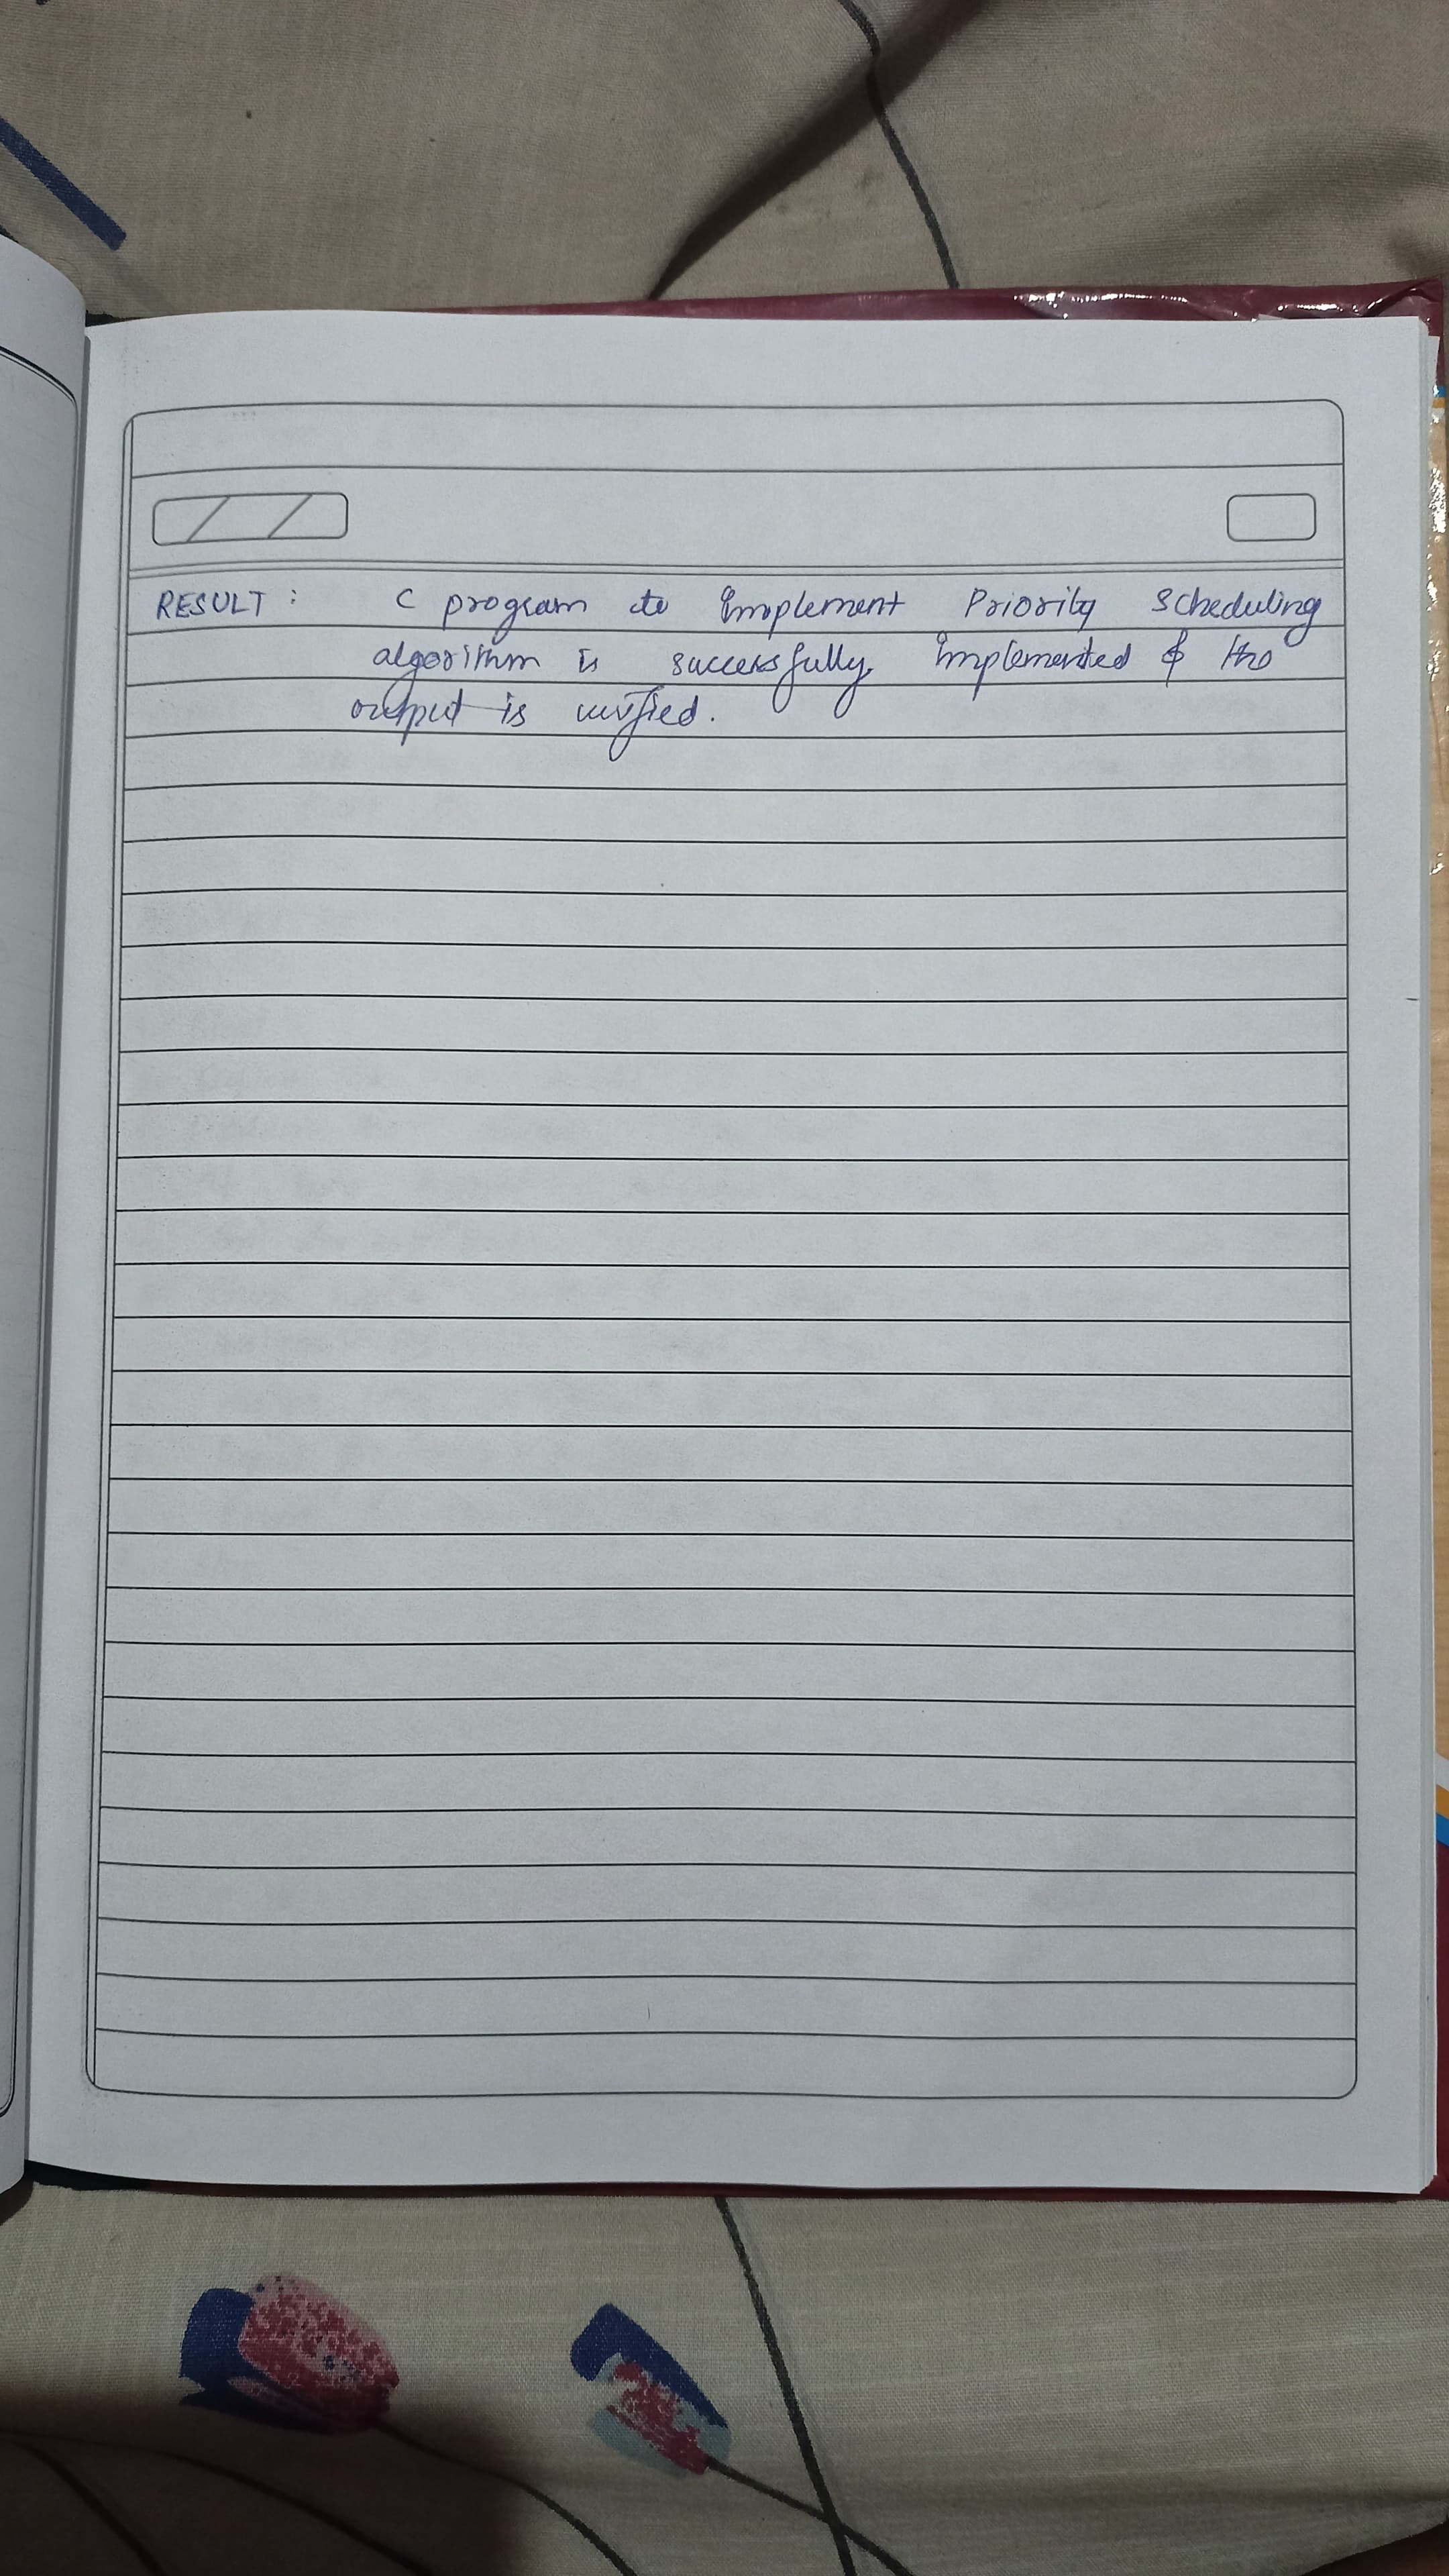 RESULT : C program to implement Priority Scheduling
algorithm is successfully implemented & the
output is verified.